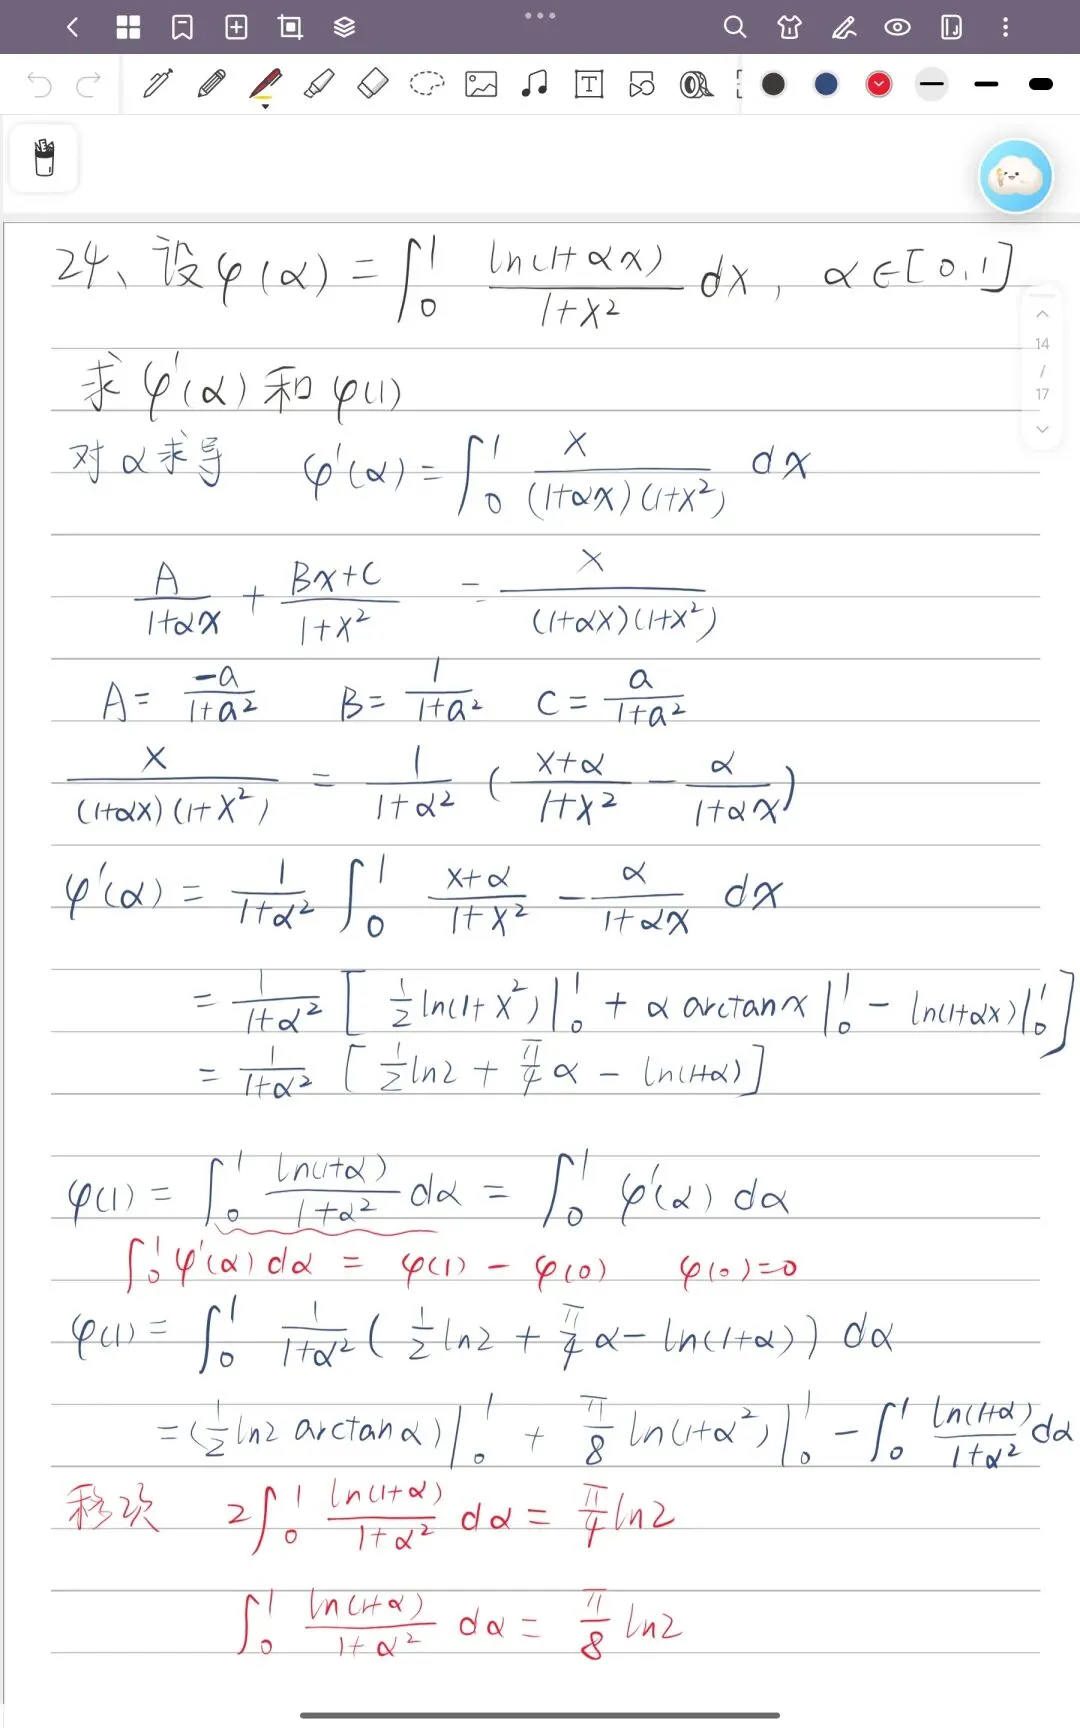 14
/
17
24、设 φ(α) = ∫₀¹ ln(1+αx)/(1+x²) dx, α∈[0,1]
求 φ'(α) 和 φ(1)
对α求导 φ'(α) = ∫₀¹ x/((1+αx)(1+x²)) dx
A/(1+αx) + (Bx+C)/(1+x²) = x/((1+αx)(1+x²))
A = -a/(1+a²) B = 1/(1+a²) C = a/(1+a²)
x/((1+αx)(1+x²)) = 1/(1+α²) ((x+α)/(1+x²) - α/(1+αx))
φ'(α) = 1/(1+α²) ∫₀¹ (x+α)/(1+x²) - α/(1+αx) dx
= 1/(1+α²) [ ½ln(1+x²)|₀¹ + α arctanx|₀¹ - ln(1+αx)|₀¹ ]
= 1/(1+α²) [ ½ln2 + π/4 α - ln(1+α) ]
φ(1) = ∫₀¹ ln(1+α)/(1+α²) dα = ∫₀¹ φ'(α) dα
∫₀¹ φ'(α) dα = φ(1) - φ(0) φ(0)=0
φ(1) = ∫₀¹ 1/(1+α²) ( ½ln2 + π/4 α - ln(1+α) ) dα
= (½ln2 arctanα)|₀¹ + π/8 ln(1+α²)|₀¹ - ∫₀¹ ln(1+α)/(1+α²) dα
移项 2∫₀¹ ln(1+α)/(1+α²) dα = π/4 ln2
∫₀¹ ln(1+α)/(1+α²) dα = π/8 ln2